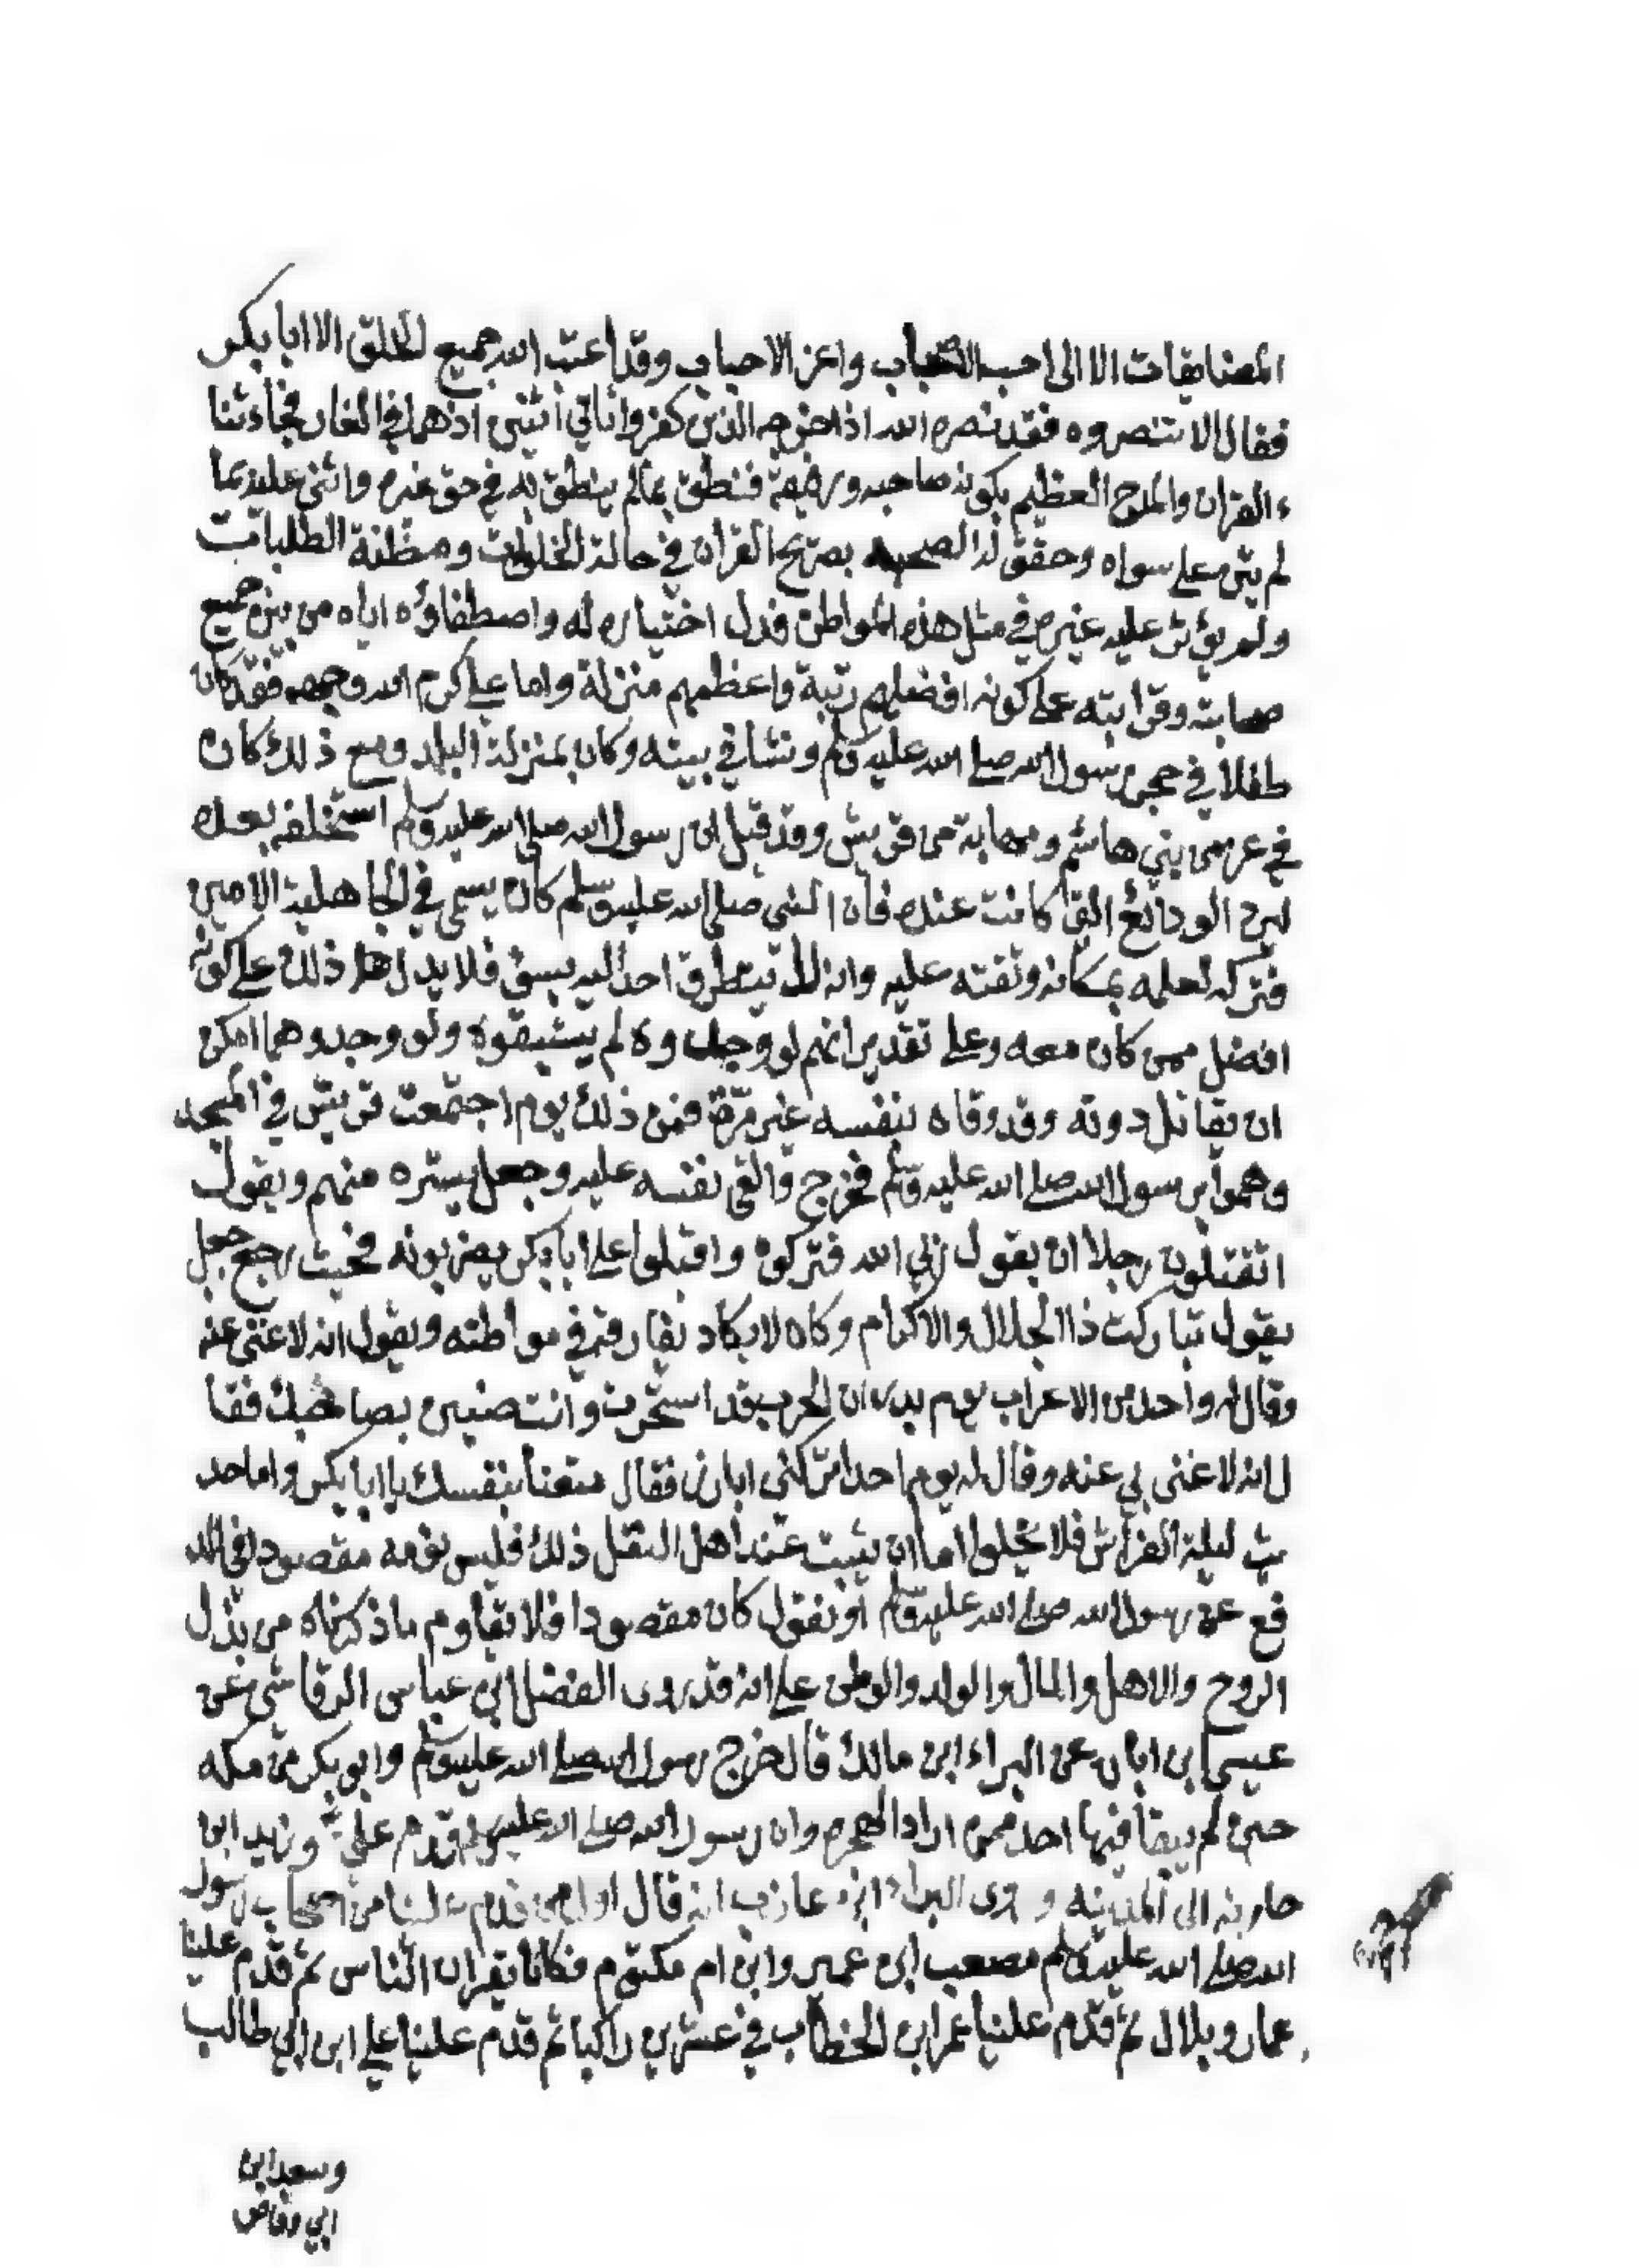 المضايقات الا الى احب الاصحاب واعز الاحباب وقد اعتب الله جميع الخلق الا ابا بكر
فقال الا تنصروه فقد نصره الله اذ اخرجه الذين كفروا ثاني اثنين اذهما في الغار فجاء ثنا
ء القران والمدح العظيم بكونه صاحبه ورفيقه فنطق بما لم ينطق به في حق غيره واثنى عليه بما
لم يثن على سواه وحقق له الصحبه بصريح القران في حالة الخلوات ومظنة الطلبات
ولم يؤثر عليه غيره في مثل هذه المواطن فدل اختياره له واصطفاؤه اياه من بين جميع
صحابته وقرابته على كونه افضلهم رتبة واعظمهم منزلة واما علي كرم الله وجهه فقد كان
طفلا في حجر رسول الله صلى الله عليه وسلم ونشا في بيته وكان بمنزلة الولد ومع ذلك كان
في عز من بني هاشم ومهابة من قريش وقد قيل ان رسول الله صلى الله عليه وسلم استخلفه بعده
ليرد الودائع التي كانت عنده فان النبي صلى الله عليه وسلم كان يسمى في الجاهلية الامين
فتركه لعلمه بمكانه وثقته عليه وانه لا يتطرق احد اليه بسوء فلا يدل هذا ذلك على كونه
افضل ممن كان معه وعلى تقدير انهم لو وجدوه لم يستبقوه ولو وجدوهما امكن
ان يقاتل دونه وقد وقاه بنفسه غير مرة فمن ذلك يوم اجتمعت قريش في المسجد
وهموا برسول الله صلى الله عليه وسلم فخرج والقى نفسه عليه وجعل يستره منهم ويقول
اتقتلون رجلا ان يقول ربي الله فتركوه واقبلوا على ابا بكر يضربونه فحيث رجع جعل
يقول تباركت ذا الجلال والاكرام وكان لا يكاد يفارقه في مواطنه ويقول انه لا غنى عنه
وقال له واحد من الاعراب يوم بدر ان الحرب قد استحرت وانت ضنين بصاحبك فقا
ل انه لا غنى بي عنه وقال له يوم احد فقال متعنا بنفسك يا ابا بكر واما حد
يث ليلة الفراش فلا يخلوا اما ان يثبت عند اهل النقل ذلك فليس نومه مقصودا في الد
فع عن رسول الله صلى الله عليه وسلم او نقول كان مقصودا فلا يقاوم ما ذكرناه من بذل
الروح والاهل والمال والولد والوطن على انه قد روى الفضل ابن عباس الرقاشي عن
عيسى ابن ابان عن البراء ابن مالك قال خرج رسول الله صلى الله عليه وسلم وابو بكر من مكه
حين لم يبقا فيها احد ممن اراد الهجره وان رسول الله صلى الله عليه وسلم قدم علي وزيد ابن
حارثه الى المدينه وروى البراء ابن عازب انه قال اول من قدم علينا من اصحاب رسول
الله صلى الله عليه وسلم مصعب ابن عمير وابن ام مكتوم فكانا يقران الناس ثم قدم علينا
عمار وبلال ثم قدم علينا عمر ابن الخطاب في عشرين راكبا ثم قدم علينا علي ابن ابي طالب
وسعد ابن
ابي وقاص